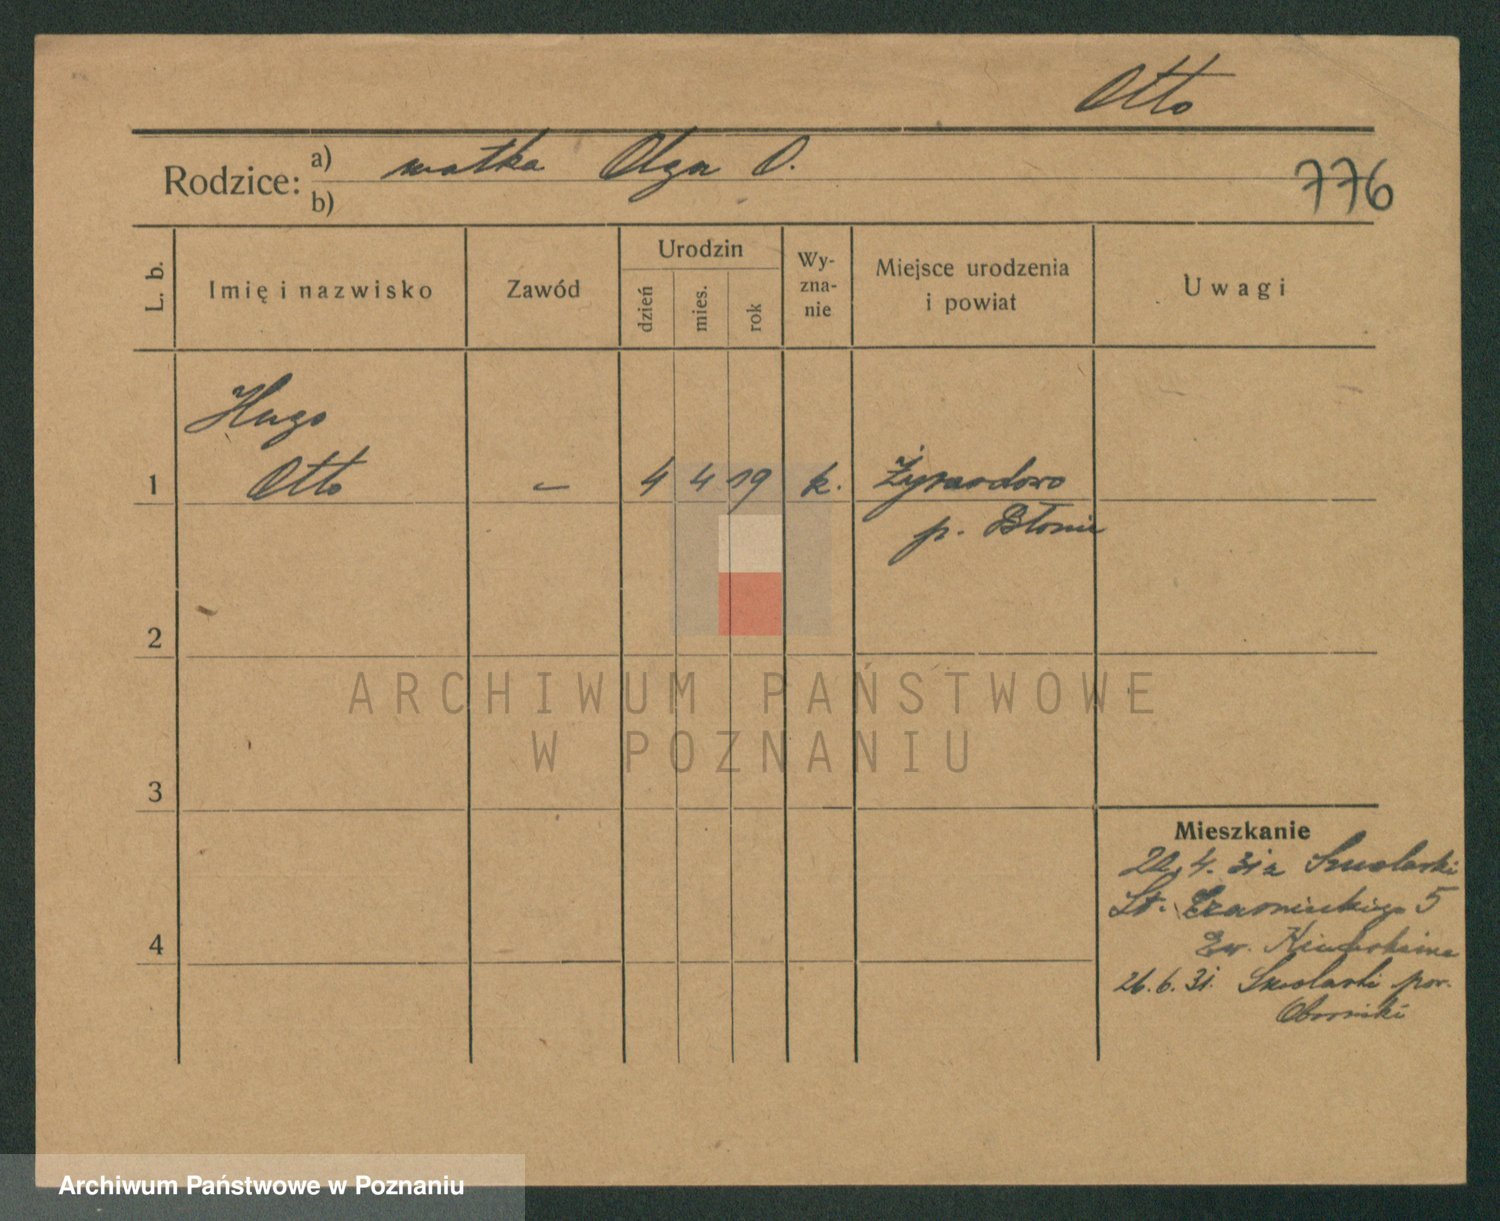 Otto
Rodzice: a) matka Olga O.
b)
776
L. b.
Imię i nazwisko
Zawód
Urodzin
dzień
mies.
rok
Wy-
zna-
nie
Miejsce urodzenia
i powiat
Uwagi
Hugo
1 Otto – 4 4 19 k. Żyrardowo
p. Błonie
2
ARCHIWUM PAŃSTWOWE
W POZNANIU
3
Mieszkanie
22.4.31 z Smolarki
St. Czarnieckiego 5
4
26.6.31. Smolarki pow.
Oborniki
Archiwum Państwowe w Poznaniu